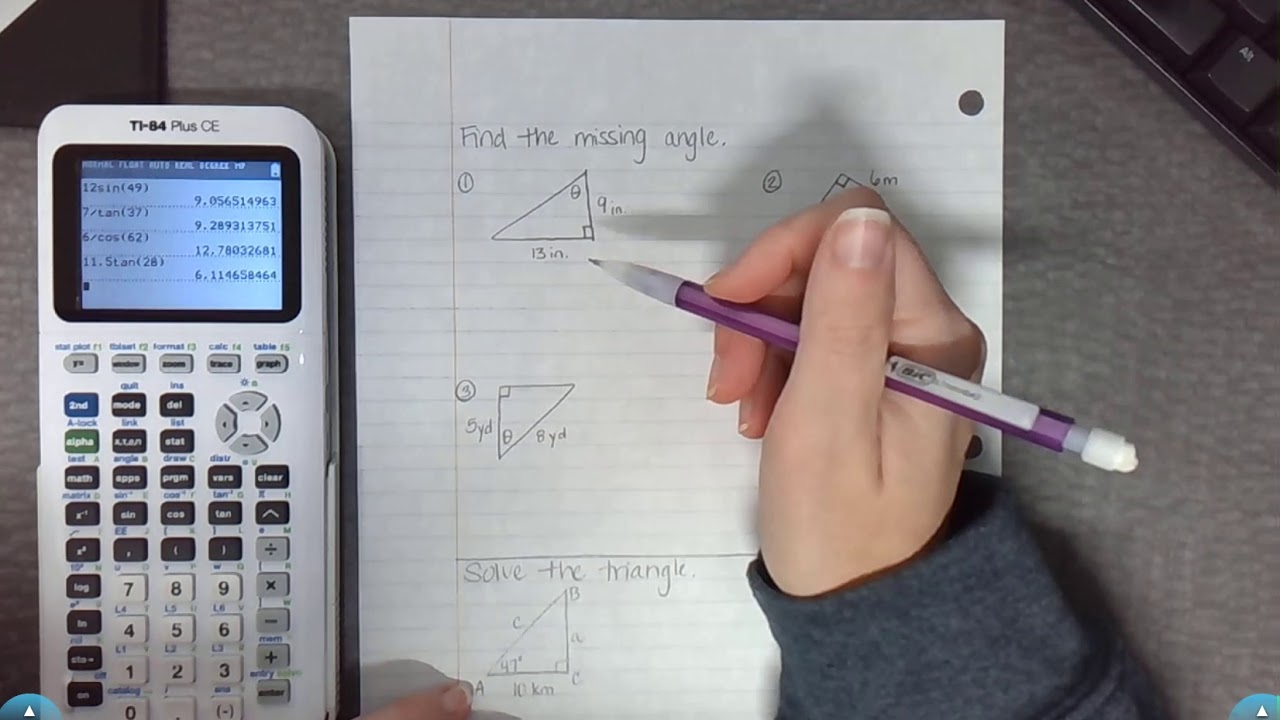 TI-84 Plus CE
NORMAL FLOAT AUTO REAL DEGREE MP
12sin(49)
9.056514963
7/tan(37)
9.289313751
6/cos(62)
12.78032681
11.5tan(28)
6.114658464
stat plot f1 tblset f2 format f3 calc f4 table f5
y= window zoom trace graph
quit ins
2nd mode del
A-lock link list
alpha X,T,θ,n stat
test A angle B draw C distr
math apps prgm vars clear
matrix D sin⁻¹ E cos⁻¹ F tan⁻¹ G π H
x⁻¹ sin cos tan ^
EE J
x² , ( ) ÷
log 7 8 9 ×
L4 L5 L6
ln 4 5 6 −
L1 L2 L3 mem
sto→ 1 2 3 +
off catalog entry solve
on 0 . (-) enter
Find the missing angle.
① θ 9 in.
13 in.
② 6m
③ 5yd θ 8 yd
Solve the triangle.
B
c a
47°
A 10 km C
BIC
Alt